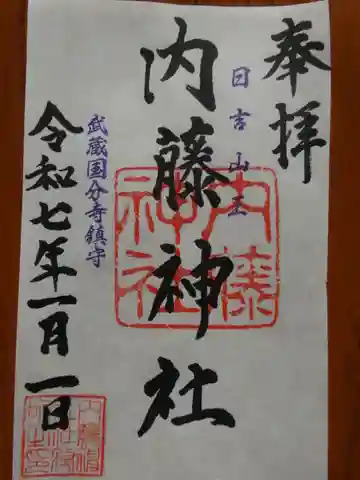 奉拝
日吉山王
内藤神社
武蔵国分寺鎮守
令和七年一月一日
内藤
神社